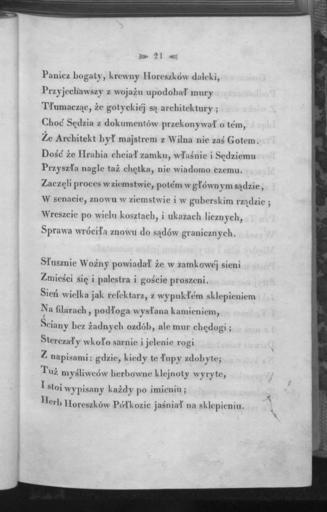 21
Panicz bogaty, krewny Horeszków daleki,
Przyjechawszy z wojażu upodobał mury
Tłumacząc, że gotyckiéj są architektury;
Choć Sędzia z dokumentów przekonywał o tém,
Że Architekt był majstrem z Wilna nie zaś Gotem.
Dość że Hrabia chciał zamku, właśnie i Sędziemu
Przyszła nagle taż chętka, nie wiadomo czemu.
Zaczęli proces w ziemstwie, potém w głównym sądzie,
W senacie, znowu w ziemstwie i w guberskim rządzie;
Wreszcie po wielu kosztach, i ukazach licznych,
Sprawa wróciła znowu do sądów granicznych.
Słusznie Woźny powiadał że w zamkowéj sieni
Zmieści się i palestra i goście proszeni.
Sień wielka jak refektarz, z wypukłém sklepieniem
Na filarach, podłoga wysłana kamieniem,
Ściany bez żadnych ozdób, ale mur chędogi;
Sterczały wkoło sarnie i jelenie rogi
Z napisami: gdzie, kiedy te łupy zdobyte;
Tuż myśliwców herbowne klejnoty wyryte,
I stoi wypisany każdy po imieniu;
Herb Horeszków Półkozic jaśniał na sklepieniu.